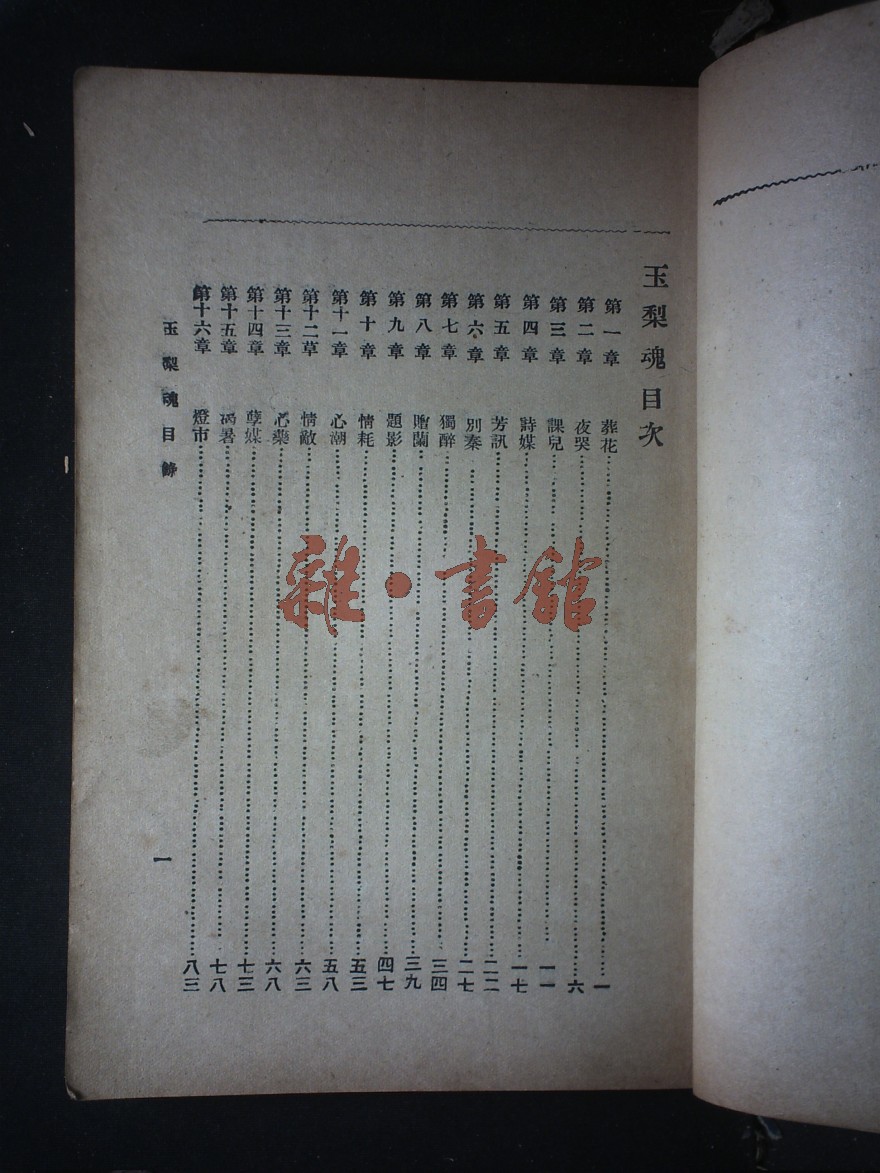 玉梨魂目次
第一章 葬花 一
第二章 夜哭 六
第三章 課兒 一一
第四章 詩媒 一七
第五章 芳訊 二二
第六章 別秦 二七
第七章 獨醉 三四
第八章 贈蘭 三九
第九章 題影 四七
第十章 情耗 五三
第十一章 心潮 五八
第十二草 情敵 六三
第十三章 心藥 六八
第十四章 孽媒 七三
第十五章 暑 七八
第十六章 燈市 八三
玉梨魂目錄
一
雜·書館